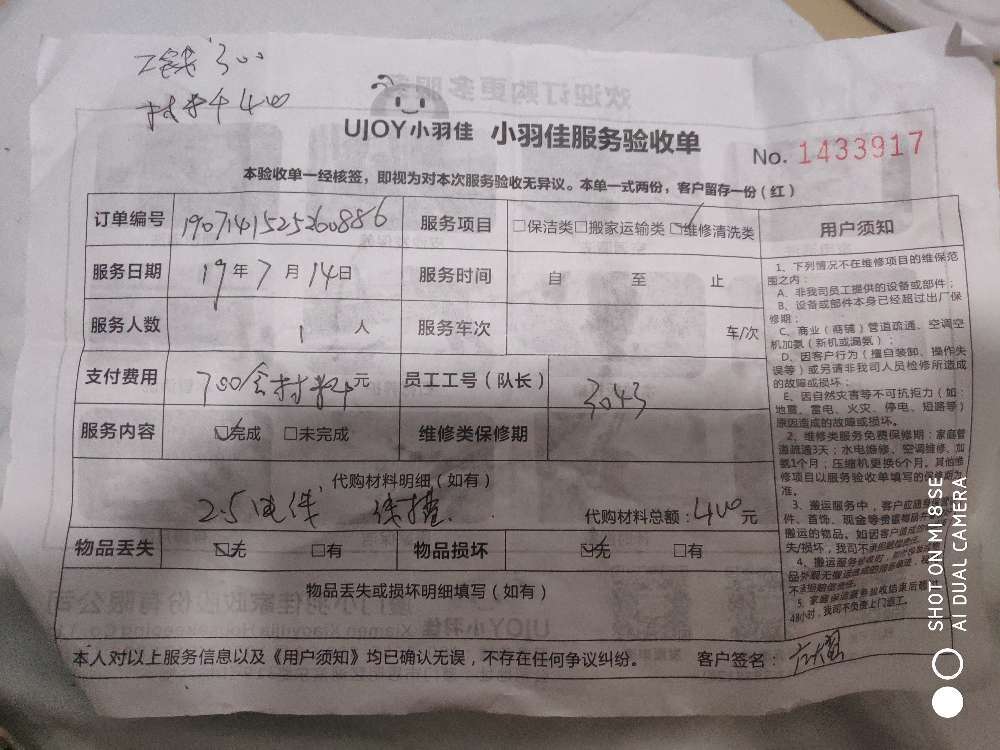 工钱300
材料400
欢迎订购更多服务
UJOY小羽佳 小羽佳服务验收单
No. 1433917
本验收单一经核签，即视为对本次服务验收无异议。本单一式两份，客户留存一份（红）
订单编号 190714152526088 6 服务项目 □保洁类□搬家运输类☑维修清洗类
用户须知
服务日期 19年7月14日 服务时间 自 至 止
服务人数 1人 服务车次 车/次
支付费用 700含材料元 员工工号（队长） 3043
服务内容 ☑完成 □未完成 维修类保修期
代购材料明细（如有）
2.5电线 线槽 代购材料总额：400元
物品丢失 ☑无 □有 物品损坏 ☑无 □有
物品丢失或损坏明细填写（如有）
本人对以上服务信息以及《用户须知》均已确认无误，不存在任何争议纠纷。 客户签名：
1、下列情况不在维修项目的维保范
围之内：
A、非我司员工提供的设备或部件；
B、设备或部件本身已经超过出厂保
修期；
C、商业（商铺）管道疏通、空调空
机加氨（新机或漏氨）；
D、因客户行为（擅自装卸、操作失
误等）或另请非我司人员检修所造成
的故障或损坏；
E、因自然灾害等不可抗拒力（如：
地震、雷电、火灾、停电、短路等）
原因造成的故障或损坏。
2、维修类服务免费保修期：家庭管
道疏通3天；水电维修、空调维修、加
氨1个月；压缩机更换6个月。其他维
修项目以服务验收单填写的保修期为
准。
3、搬运服务中，客户应
件、首饰、现金等贵重物品
搬运的物品。如因客户
失/损坏，我司不承担
4、搬运服务
品外观无搬运
不承担赔偿责任。
5、家庭保洁服务验收结束后超
48小时，我司不负责上门返工。
SHOT ON MI 8SE
AI DUAL CAMERA